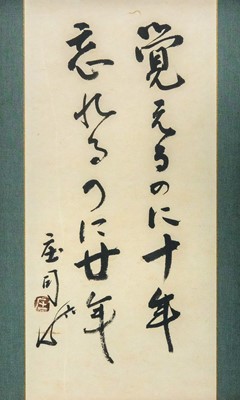 覚えるのに十年
忘れるのに廿年
庄司